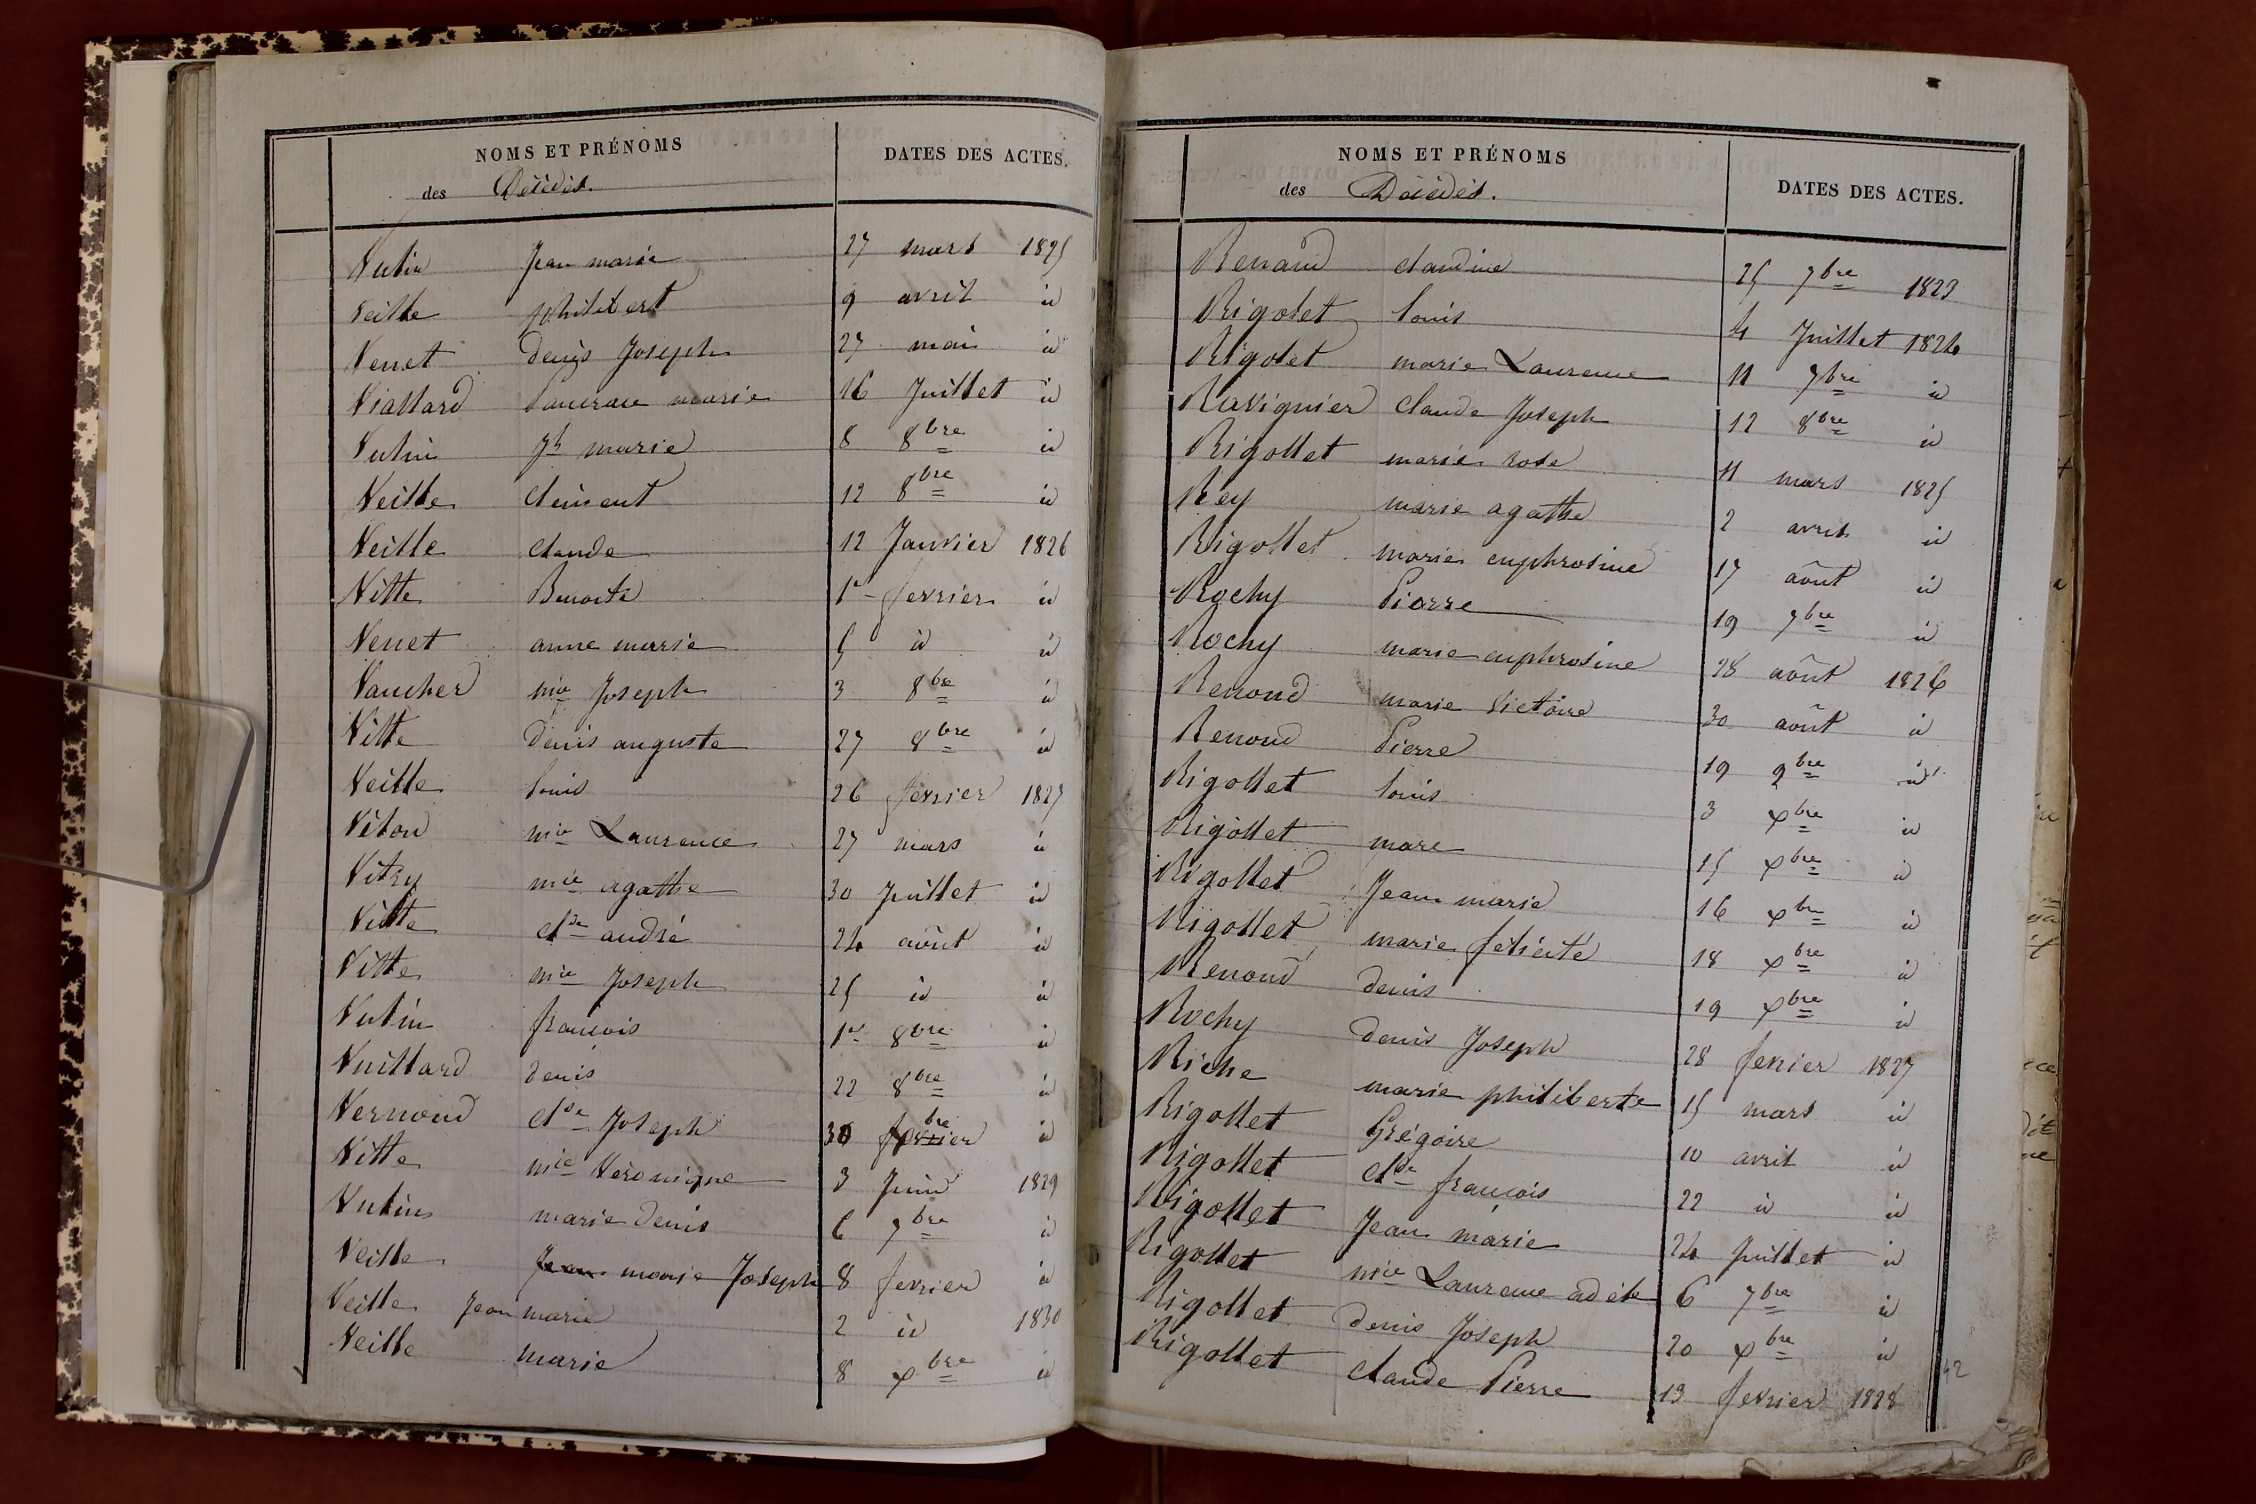 NOMS ET PRÉNOMS DATES DES ACTES.
des Décédés.
Vutin Jean marie 27 mars 1825
Veille philibert 9 avril id
Venet denis Joseph 27 mai id
Viallard Laurence marie 16 Juillet id
Vutin Jh marie 8 8bre id
Veille Clément 12 8bre id
Veille Claude 12 Janvier 1826
Vitte Benoite 1er fevrier id
Venet anne marie 5 id id
Vaucher mie Joseph 3 8bre id
Vitte denis auguste 27 8bre id
Veille louis 26 fevrier 1827
Viton mie Laurence 27 mars id
Vitry mie agathe 30 Juillet id
Vitte Cde andré 24 août id
Vitte mie Joseph 25 id id
Vutin francois 1er 8bre id
Vuillard denis 22 8bre id
Vernoud Cde Joseph 30 bre id
Vitte mie Véronique 3 Juin 1829
Vutin marie denis 6 7bre id
Veille Jean marie Joseph 8 fevrier id
Veille Jean marie 2 id 1830
Veille marie 8 xbre id
NOMS ET PRÉNOMS DATES DES ACTES.
des Décédés.
Renaud claudine 25 7bre 1823
Rigolet louis 4 Juillet 1824
Rigolet marie Laurence 11 7bre id
Ravignier Claude Joseph 12 8bre id
Rigollet marie rose 11 mars 1825
Rey marie agathe 2 avril id
Rigollet marie euphrosine 17 août id
Rochy Pierre 19 7bre id
Rochy marie euphrosine 28 août 1826
Renoud marie Victoire 30 août id
Renoud Pierre 19 9bre id
Rigollet louis 3 xbre id
Rigollet marc 15 xbre id
Rigollet Jean marie 16 xbre id
Rigollet marie félicité 18 xbre id
Renoud denis 19 xbre id
Rochy denis Joseph 28 fevrier 1827
Riche marie philiberte 15 mars id
Rigollet Grégoire 10 avril id
Rigollet Cde francois 22 id id
Rigollet Jean marie 24 Juillet id
Rigollet mie Laurence adéle 6 7bre id
Rigollet denis Joseph 20 xbre id
Rigollet claude Pierre 13 fevrier 1828